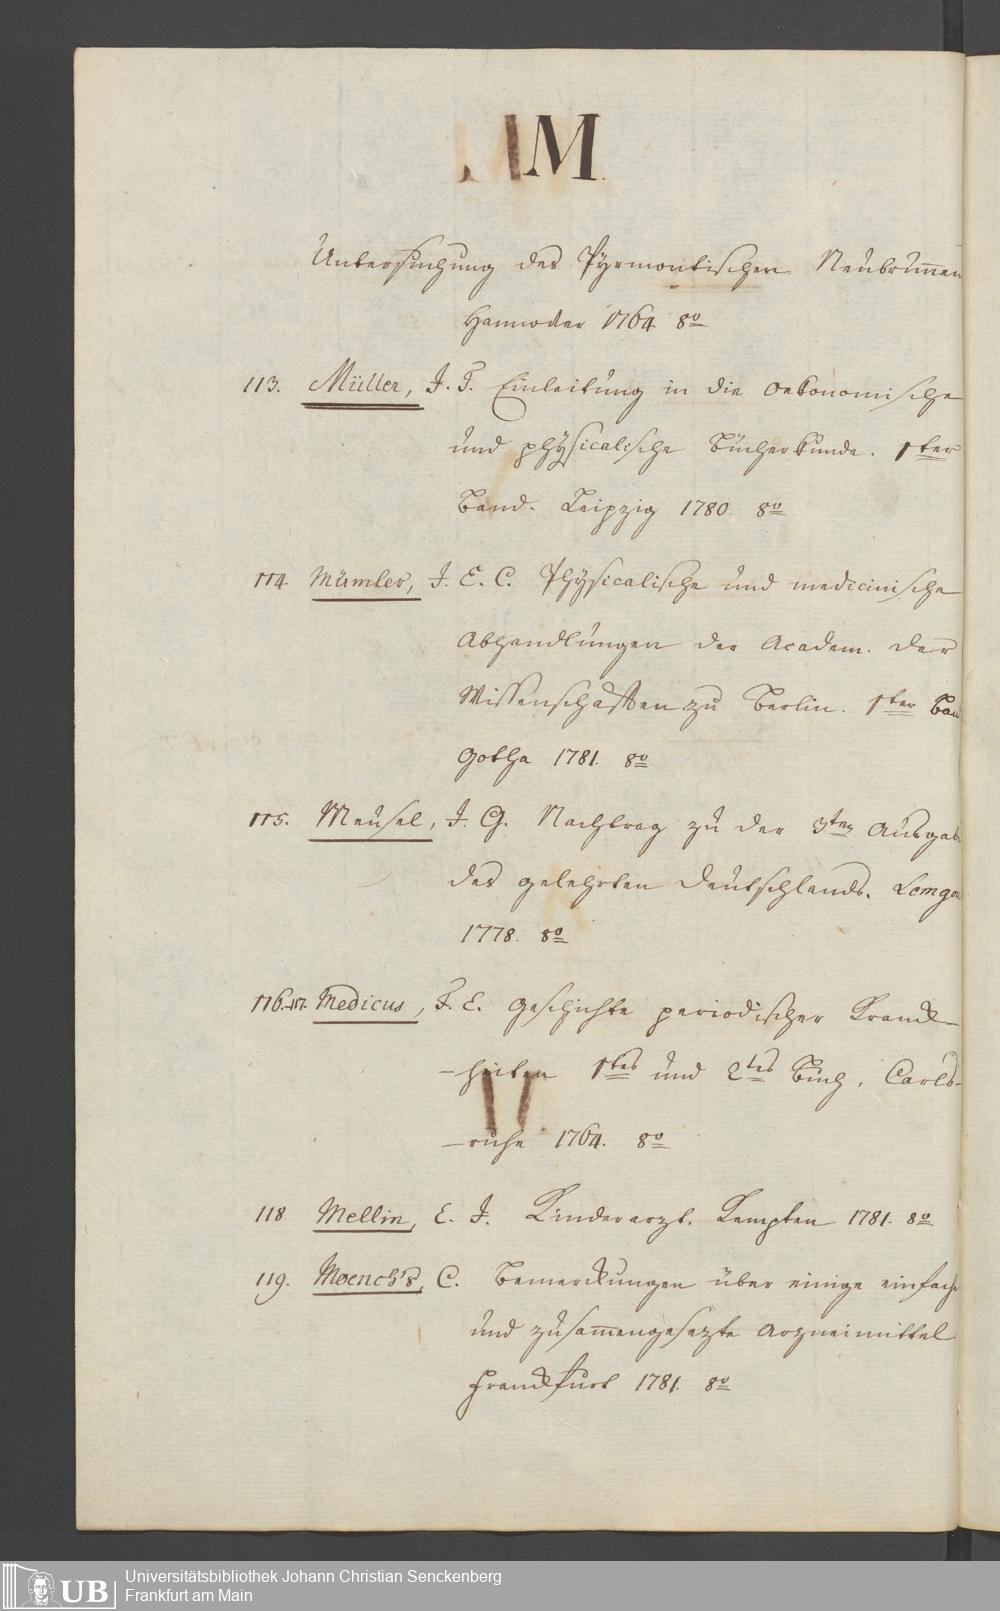 M
Untersuchung des Pyrmontischen Neübrun̄en
Hannover 1764 8º
113. Müller, J. T. Einleitung in die oekonomische
und physicalische Bücherkunde. 1ter
Band. Leipzig 1780. 8º
114. Mümler, J. E. C. Physicalische und medicinische
Abhandlungen der Academ. der
Wissenschafften zu Berlin. 1ter Ban
Gotha 1781. 8º
115. Meusel, J. G. Nachtrag zu der 3ten Ausgab
des gelehrten Deutschlands. Lemgo
1778. 8º
116.-117. Medicus, F. C. Geschichte periodischer Kranck
-heiten 1tes und 2tes Buch, Carls-
-ruhe 1764. 8º
118 Mellin, C. J. Kinderarzt. Kempten 1781. 8º
119. Moench's, C. Bemerckungen über einige einfache
und zusam̄engesezte Arzneimittel
Franckfurt 1781. 8º
UB
Universitätsbibliothek Johann Christian Senckenberg
Frankfurt am Main